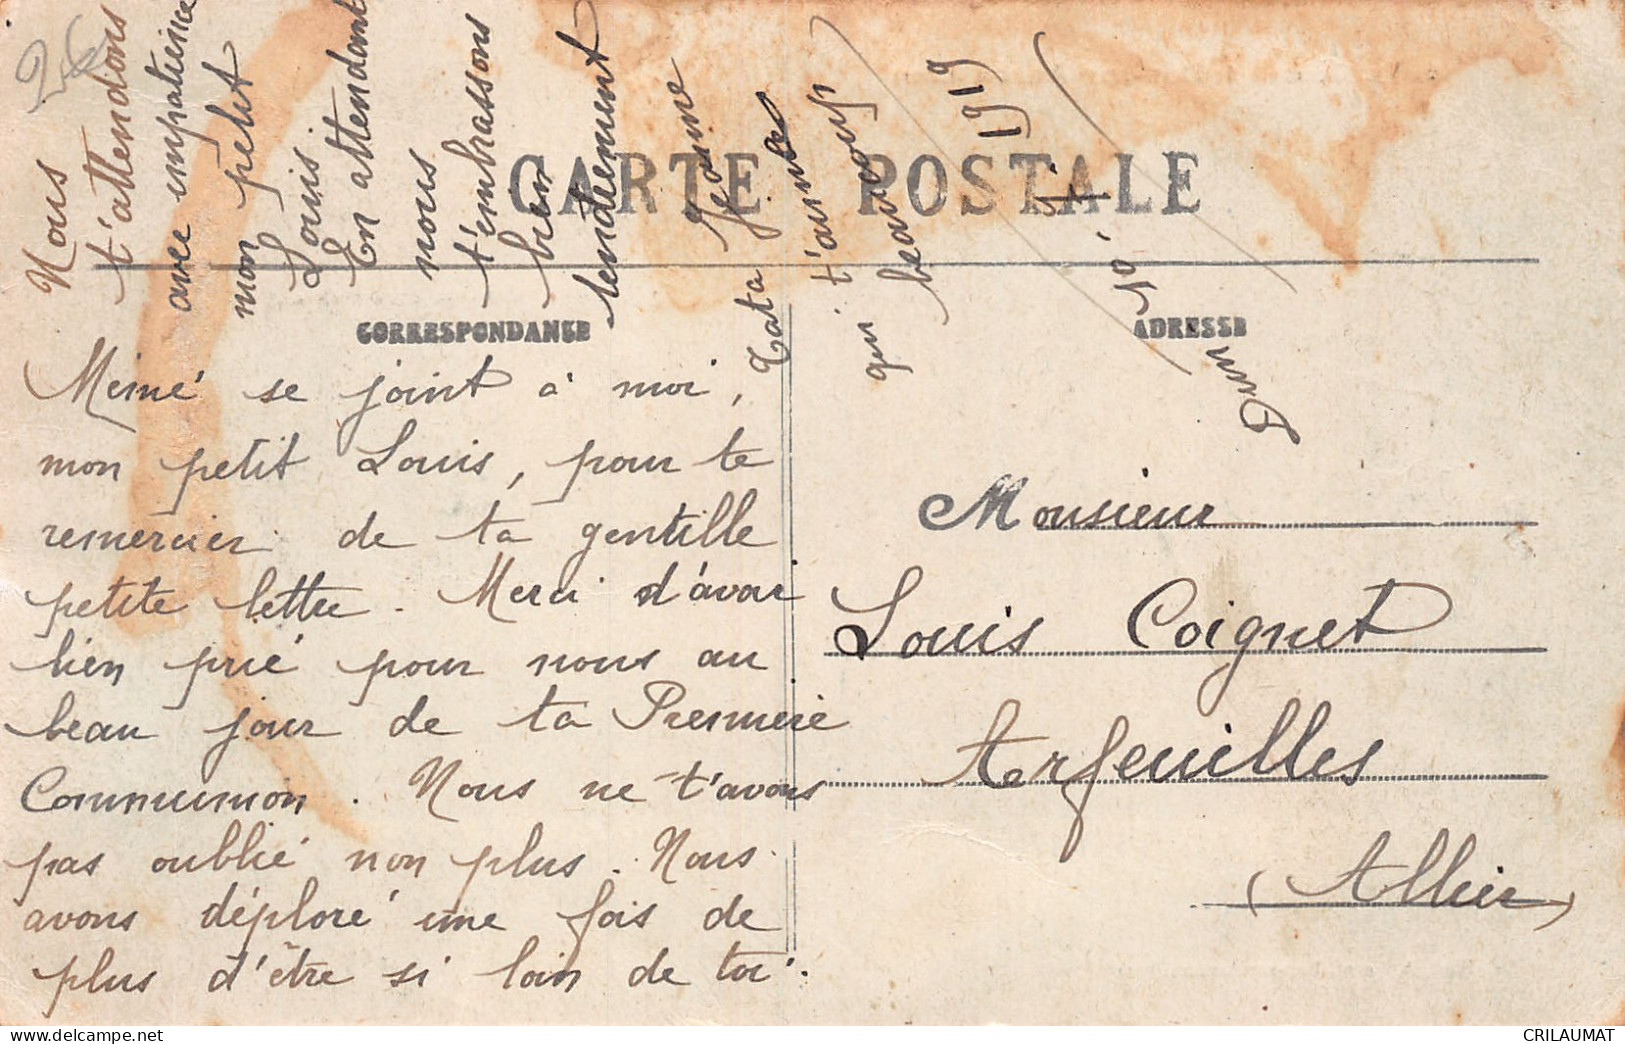 26
CARTE POSTALE
CORRESPONDANCE
ADRESSE
Mémé se joint à moi,
mon petit Louis, pour te
remercier de ta gentille
petite lettre. Merci d'avoir
bien prié pour nous au
beau jour de ta Première
Communion. Nous ne t'avons
pas oublié non plus. Nous
avons déploré une fois de
plus d'être si loin de toi.
Nous
t'attendons
avec impatience
mon petit
Louis
En attendant
nous
t'embrassons
bien
tendrement
Tata Jeanne
qui t'aime
beaucoup
10 1919
Monsieur
Louis Coignet
Arfeuilles
(Allier)
delcampe.net
CRILAUMAT